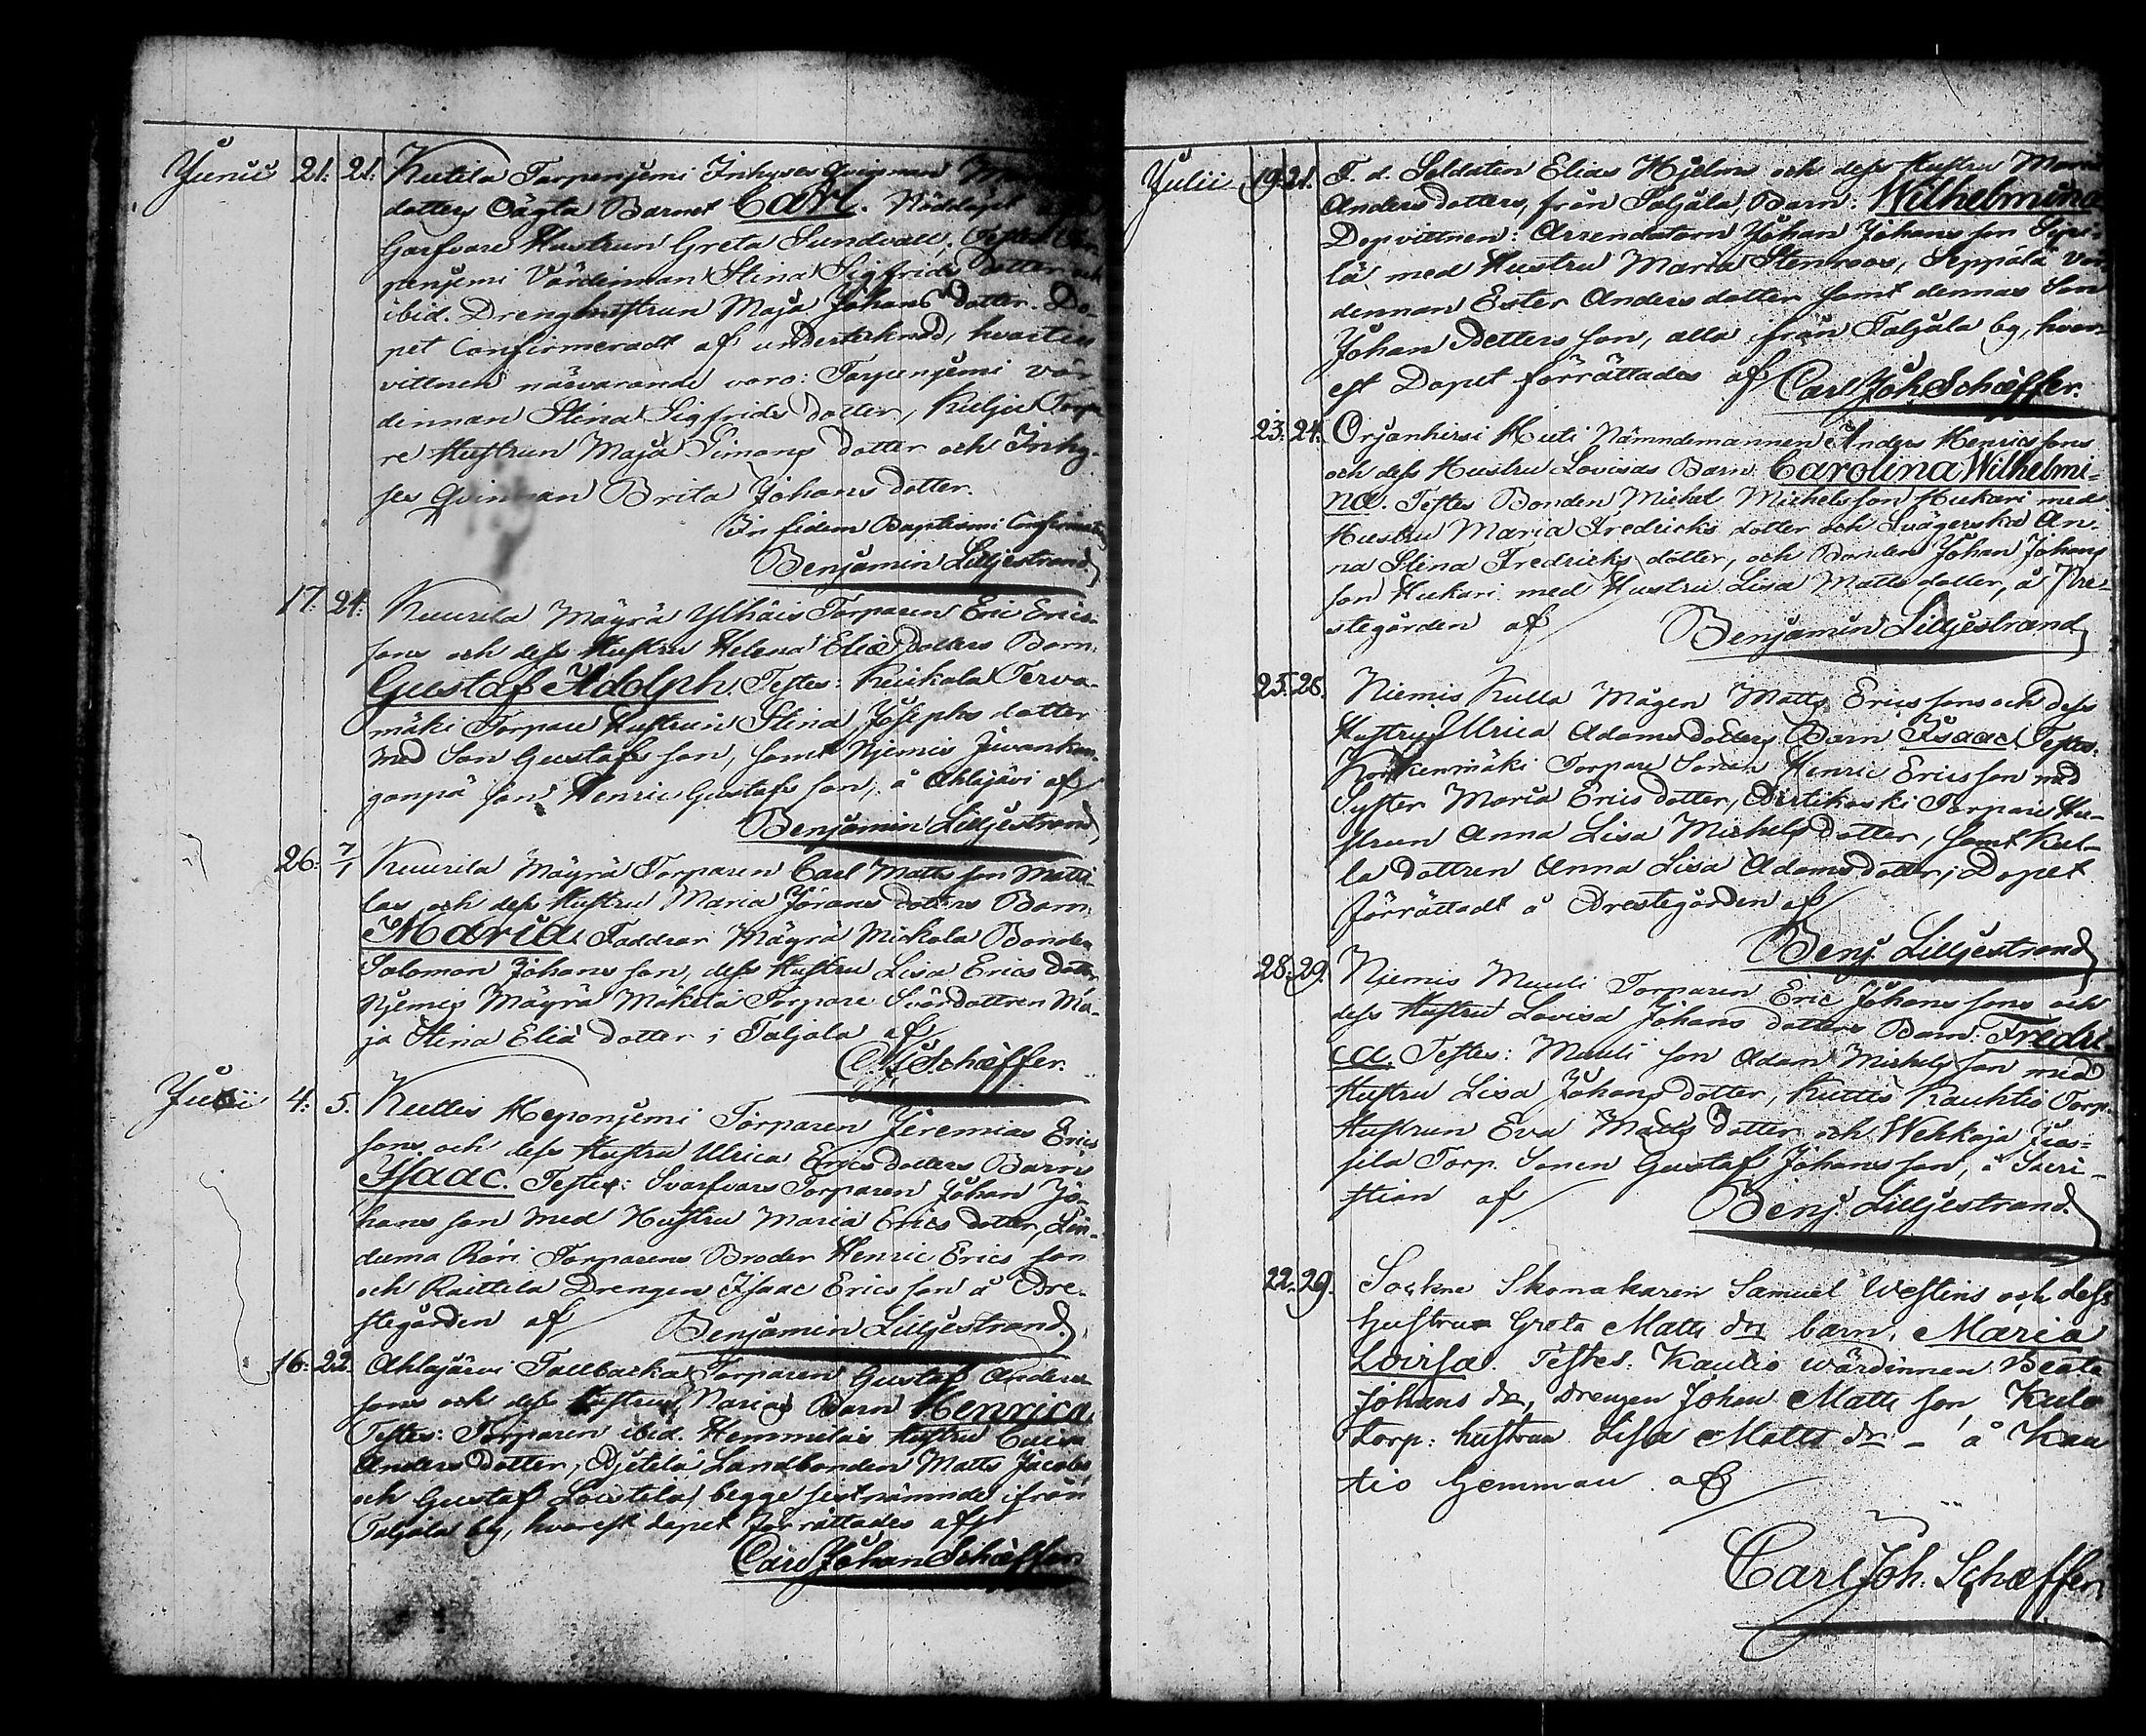 Junii 21. 21. Kutila Torpenjemi Inhyses Qvinnan
dotters Oägta Barnet Carl. Nöddöpt
Garfvare Hustrun Greta Sundvall, Testes
penjemi Värdinnan Stina Sigfrids dotter och
ibid. Dreng hustrun Maja Johans dotter. Do-
pet Confirmeradt af undertecknad, hvartill
vittnen närvarande voro: Torpenjemi vär
dinnan Stina Sigfrids dotter, Torpa
re Hustrun Maja Simons dotter och Inhy-
ses Qvinnan Brita Johans dotter.
In fidem Baptismi Confirmati
Benjamin Lilljestrand.
17. 24. Kuurila Mäyrä Ylhäis Torparen Eric Erics
sons och dess Hustru Helena Eliæ dotters Barn:
Gustaf Adolph. Testes: Kuikala Terva-
mäki Torpare Hustrun Stina Josephs dotter
med Son Gustafs son, samt Njemis
son Henric Gustafs son, å Ahlajävi af
Benjamin Lilljestrand
26. 7/1 Kuurila Mäyrä Torparen Carl Matts son Matti-
las och dess Hustru Maria Jörans dotters Barn:
Maria. Faddrar Mäyrä Nickola Bonden
Salomon Johans son, dess Hustru Lisa Erics dotter,
Njemis Mäyrä Mäkelä Torpare Svärdottren Ma-
ja Stina Eliæ dotter i Taljala af
C. J. Schæffer.
Julii 4. 5. Kuttis Heponjemi Torparen Jeremias Erics
sons och dess Hustru Ulrica Erics dotters Barn
Isaac. Testes: Svarfvars Torparen Johan Jo-
hans son med Hustru Maria Erics dotter, Lin-
duma Röri Torparens Broder Henric Erics son
och Raittila Drengen Isaac Erics son å Pre-
stegården af Benjamin Lilljestrand.
16. 22. Ahlajärvi Tallbacka Torparen Gustaf Anders
sons och dess Hustrus Marias Barn Henrica.
Testes: Torparen ibid. Hemmilas Hustru Caisa
Anders dotter, Landbonden Matts Jacobs
och Gustaf begge sistnämnde ifrån
Taljala by, hvarest dopet förrättades af
Carl Johan Schæffer
Julii 19. 21. F. d. Soldaten Elias Hjelms och dess Hustru Maria
Anders dotters, från Taljala, Barn: Wilhelmina.
Dopvittnen: Arrendatorn Johan Johans son
lä med Hustru Maria Stenroos, Seppälä vär
dinnan Ester Anders dotter samt dennas Son
Johan Petters son, alla från Taljala by, hvar-
est Dopet förrättades af Carl Joh. Schæffer.
23. 24. Orjanhirsi Huti Nämndemannen Anders Henrics sons
och dess Hustru Lovisas Barn Carolina Wilhelmi-
na. Testes Bonden Michel Michels son Hukari med
Hustru Maria Fredrichs dotter och Svägerska An-
na Stina Fredrichs dotter, och Bonden Johan Johans
son Hukari med Hustru Lisa Matts dotter, å Pre-
stegården af Benjamin Lilljestrand
25. 26. Niemis Kulla Mågen Matts Erics sons och dess
Hustrus Ulrica Adams dotters Barn Isaac. Testes:
Korkenmäki Torpare Sonen Henric Erics son med
Syster Maria Erics dotter, Torpare Hu-
strun Anna Lisa Michels dotter, samt Kul-
la dottren Anna Lisa Adams dotter; Dopet
förrättadt å Prestegården af
Benj. Lilljestrand
28. 29. Njemis Muuli Torparen Eric Johans sons och
dess Hustru Lovisa Johans dotters Barn: Fredri-
ca. Testes: Muuli son Adam Michels son med
Hustru Lisa Johans dotter, Kuttis Rauhtio Torp.
Hustrun Eva Matts dotter och Wehkoja Juas-
sila Torp. Sonen Gustaf Johans son, å Sacri-
stian af Benj. Lilljestrand.
22. 29. Sockne Skomakaren Samuel Westins och dess
hustrus Greta Matts drs barn, Maria
Lovisa. Testes: Kautio wärdinnan Beata
Johans dr, drengen Johan Matts son, Kulo
torp: hustrun Lisa Matts dr – å Kau
tio hemman af
Carl Joh. Schæffer